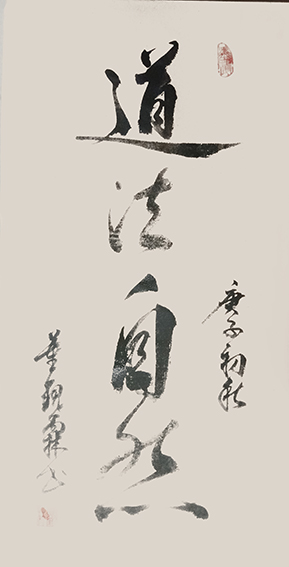 道法自然
庚子初秋